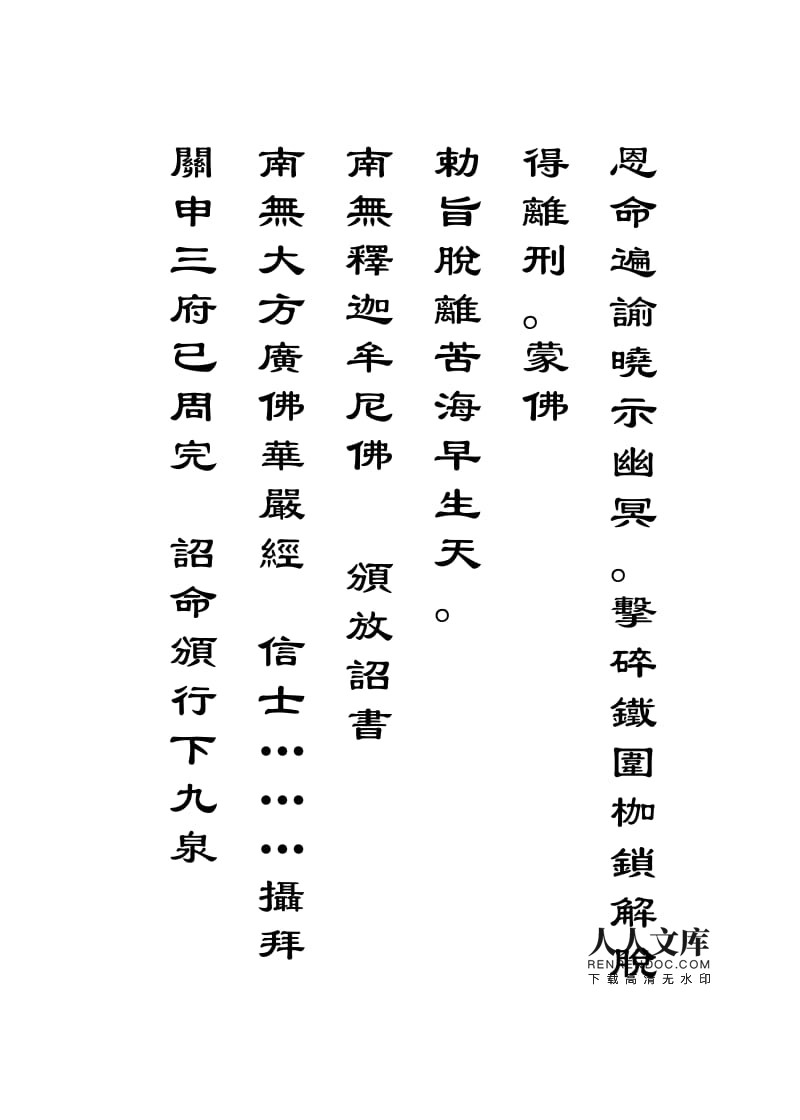 恩命遍諭曉示幽冥。擊碎鐵圍枷鎖解脫
得離刑。蒙佛
勅旨脫離苦海早生天。
南無釋迦牟尼佛　頒放詔書
南無大方廣佛華嚴經　信士………攝拜
關申三府已周完　詔命頒行下九泉
人人文库
RENRENDOC.COM
下载高清无水印